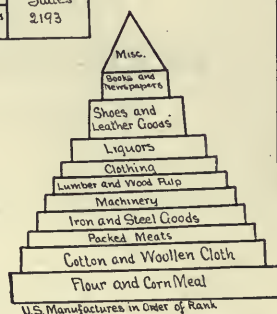 2193
Misc.
Books and
Newspapers
Shoes and
Leather Goods
Liquors
Clothing
Lumber and Wood Pulp
Machinery
Iron and Steel Goods
Packed Meats
Cotton and Woollen Cloth
Flour and Corn Meal
U.S. Manufactures in Order of Rank